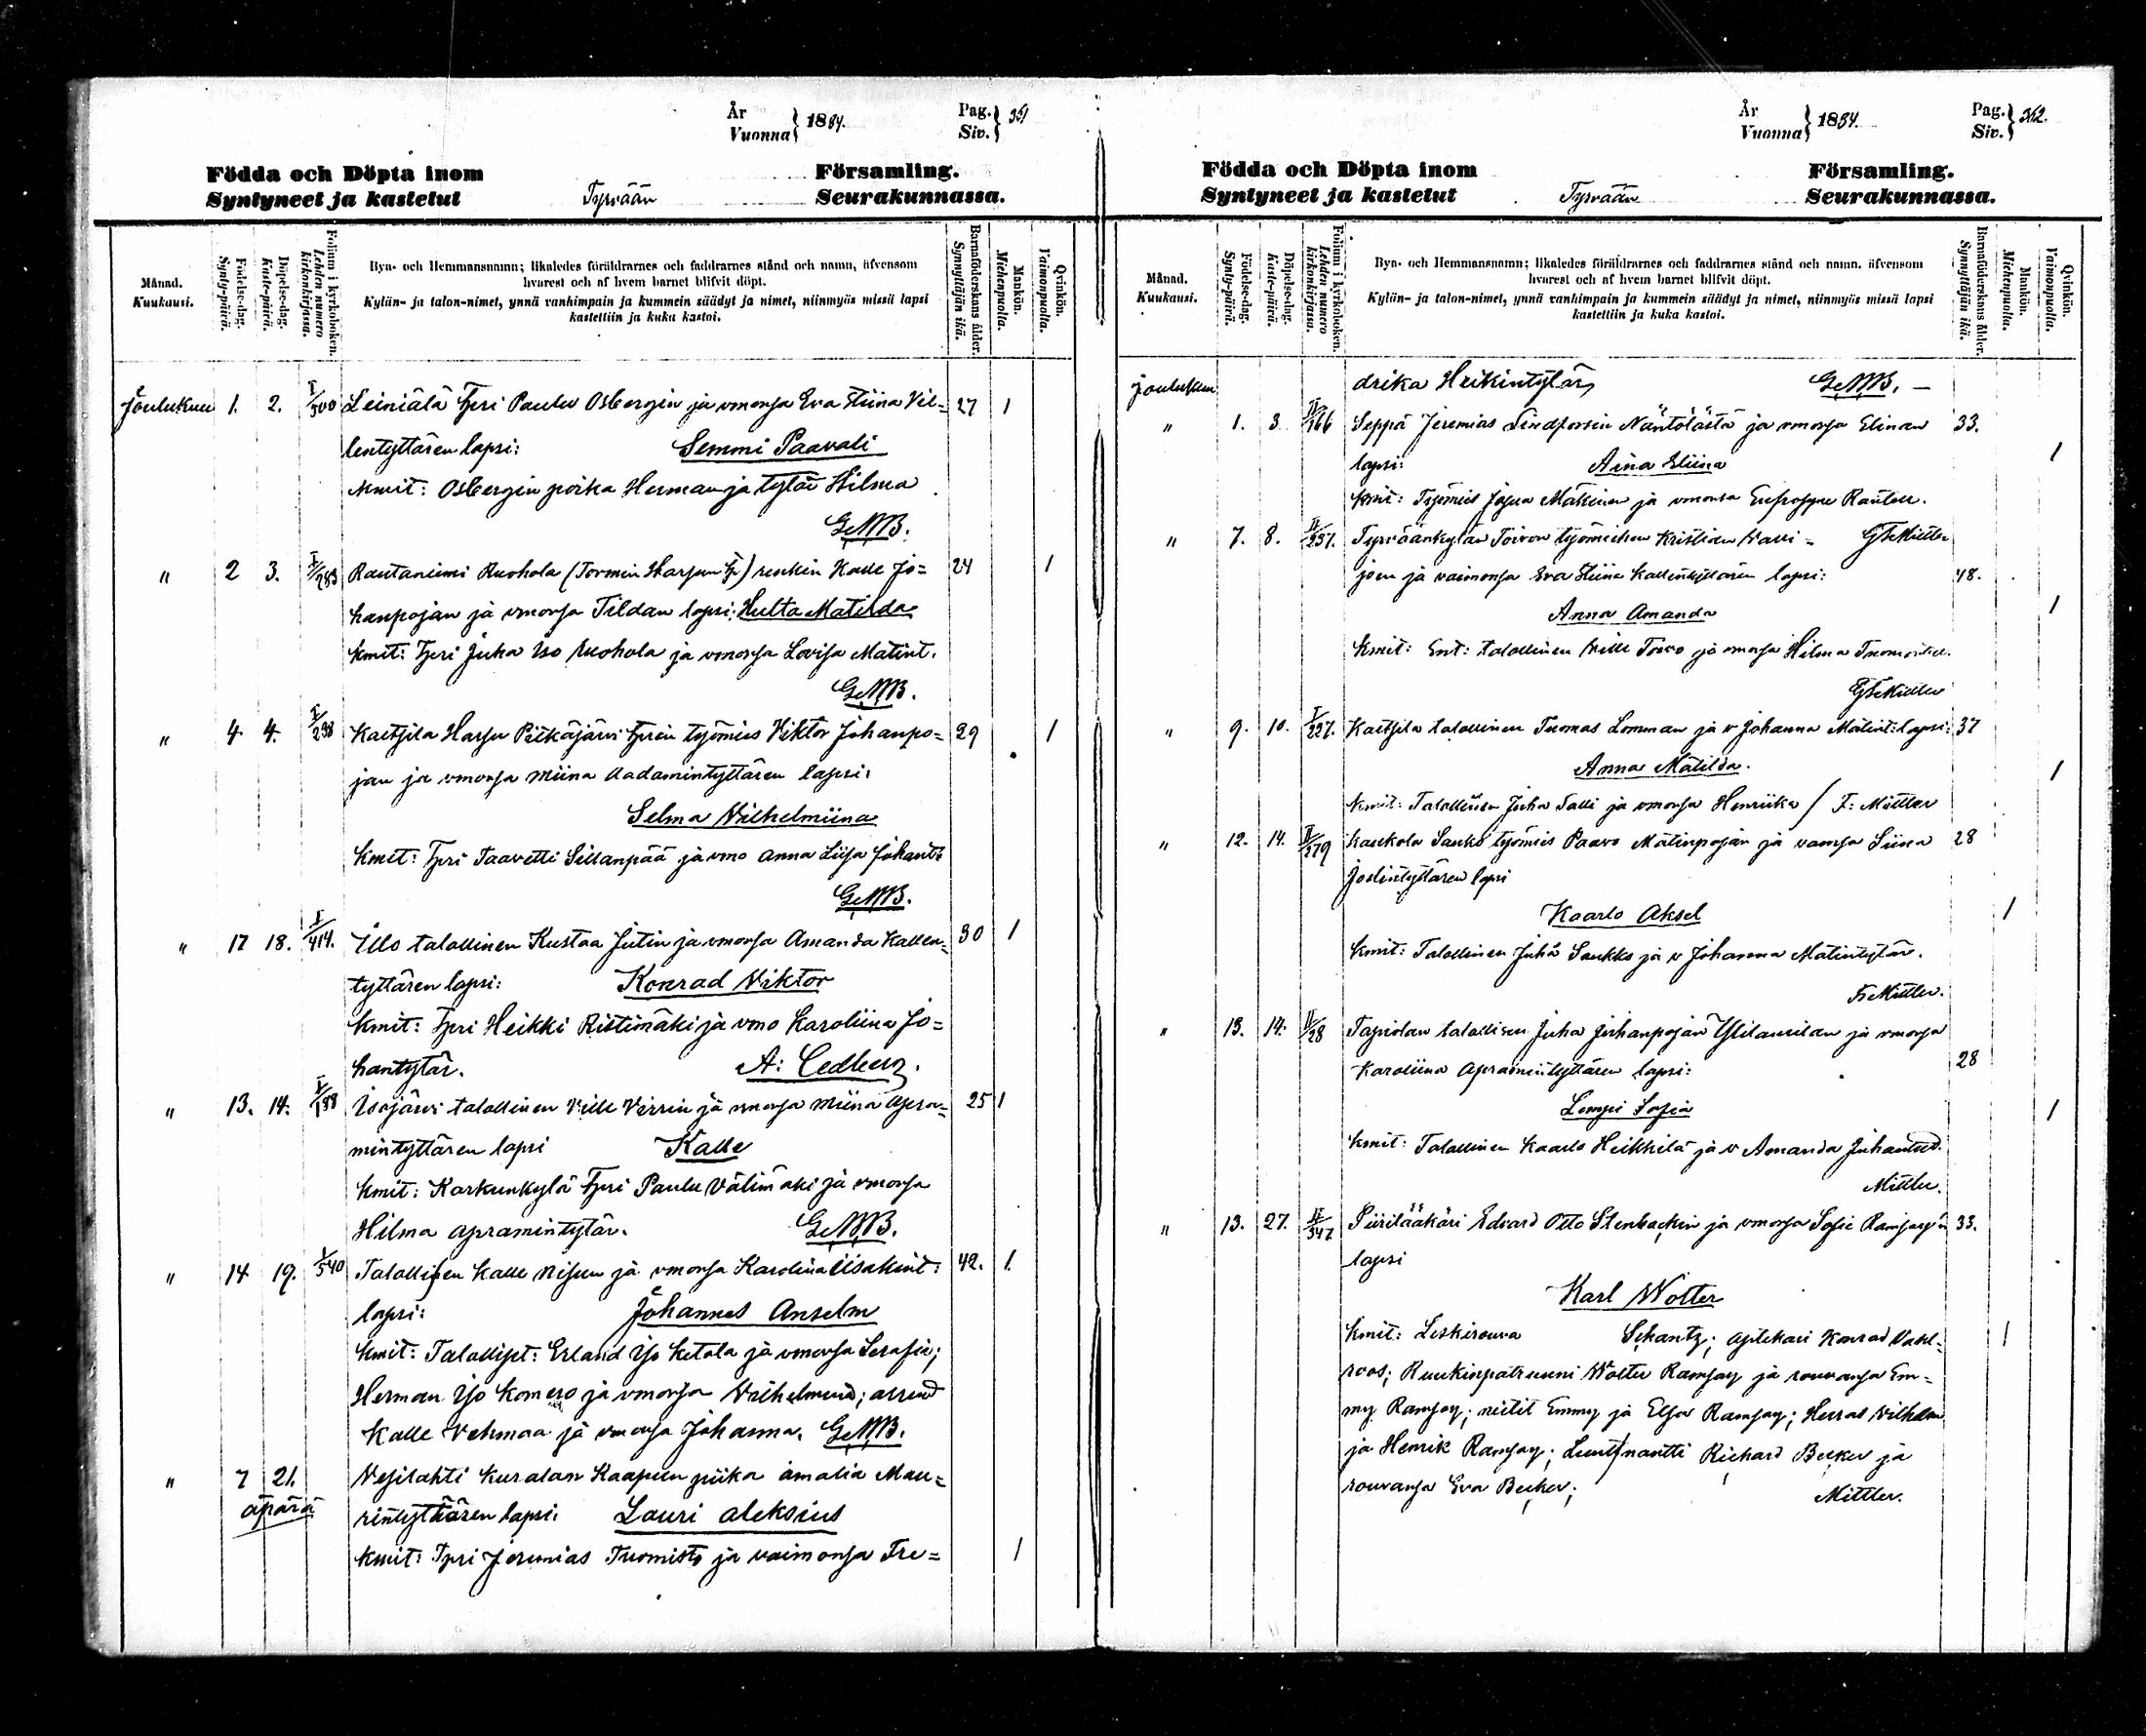 År
Vuonna } 1884.
Pag.
Siv. } 361
Födda och Döpta inom Församling.
Syntyneet ja kastetut Tyrvään Seurakunnassa.
Månad.
Kuukausi.
Födelse-dag.
Synty-päivä.
Döpelse-dag.
Kaste-päivä.
Folium i kyrkoboken.
Lehden numero kirkonkirjassa.
Byn- och Hemmansnamn; likaledes föräldrarnes och faddrarnes stånd och namn, äfvensom
hvarest och af hvem barnet blifvit döpt.
Kylän- ja talon-nimet, ynnä vanhimpain ja kummein säädyt ja nimet, niinmyös missä lapsi
kastettiin ja kuka kastoi.
Barnaföderskans ålder.
Synnyttäjän ikä.
Mankön.
Miehenpuolia.
Qvinkön.
Vaimonpuolia.
Joulukuu 1. 2. I/500 Leiniälä Tpri Paulu Osbergin ja vmonsa Eva Stiina Vil= 27 1
lentyttären lapsi: Semmi Paavali
kmit: Osbergin poika Herman ja tytär Hilma
G.M.B.
" 2 3. I/283 Rautaniemi Ruohola (Tormin Harjun) renkin Kalle Jo= 24 1
hanpojan ja vmonsa Tildan lapsi: Hulta Matilda
kmit: Tpri Juha Iso Ruohola ja vmonsa Lovisa Matint.
G.M.B.
" 4. 4. I/298 Kaltsila Harju Pitkäjärvi Tprin työmies Viktor Johanpo= 29 1
jan ja vmonsa Miina Aadamintyttären lapsi:
Selma Vilhelmiina
kmit: Tpri Taavetti Sillanpää ja vmo Anna Liisa Johant:
G.M.B.
" 17 18. I/414. Illo talollinen Kustaa Jutin ja vmonsa Amanda Kallen= 30 1
tyttären lapsi: Konrad Viktor
kmit: Tpri Heikki Ristimäki ja vmo Karoliina Jo=
hantytär. A: Cedberg.
" 13. 14. I/188 Isojärvi talollinen Ville Virrin ja vmonsa Miina Apra= 25 1
mintyttären lapsi Kalle
kmit: Karkunkylä Tpri Paulu Välimäki ja vmonsa
Hilma Apramintytär. G.M.B.
" 14 19. I/540 Talollisen Kalle ja vmonsa Karolina Iisakint: 42. 1.
lapsi: Johannes Anselm
kmit: Talolliset: Erland Iso Ketola ja vmonsa Serafia;
Herman Iso Komero ja vmonsa Vilhelmina;
Kalle Vehmaa ja vmonsa Johanna. G.M.B.
" 7 21. Vesilahti Kuralan Kaapun piika Amalia Mau=
äpärä rintyttären lapsi: Lauri Aleksius
kmit: Tpri Jeremias Tuomisto ja vaimonsa Fre= 1
År
Vuonna } 1884.
Pag.
Siv. } 362.
Födda och Döpta inom Församling.
Syntyneet ja kastetut Tyrvään Seurakunnassa.
Månad.
Kuukausi.
Födelse-dag.
Synty-päivä.
Döpelse-dag.
Kaste-päivä.
Folium i kyrkoboken.
Lehden numero kirkonkirjassa.
Byn- och Hemmansnamn; likaledes föräldrarnes och faddrarnes stånd och namn, äfvensom
hvarest och af hvem barnet blifvit döpt.
Kylän- ja talon-nimet, ynnä vanhimpain ja kummein säädyt ja nimet, niinmyös missä lapsi
kastettiin ja kuka kastoi.
Barnaföderskans ålder.
Synnyttäjän ikä.
Mankön.
Miehenpuolia.
Qvinkön.
Vaimonpuolia.
Joulukuu drika Heikintytär, G.M.B. —
" 1. 3 II/166 Seppä Jeremias Lindforsin Näntölästä ja vmonsa Elinan 33.
lapsi: Aina Eliina 1
kmit: Työmies Josua Mäkinen ja vmonsa Eufrosyne
" 7. 8. II/257. Tyrväänkylän Toivon työmiehen Kristian Vavi= G F Mittler
joen ja vaimonsa Eva Stiina Kallentyttären lapsi: 48.
Anna Amanda 1
kmit: Ent: talollinen Ville Toivo ja vmonsa Hilma
G F Mittler
" 9. 10. I/227. Kaltsila talollinen Tuomas Lomman ja v Johanna Matint: lapsi: 37
Anna Matilda. 1
kmit: Talollinen Juha Talli ja vmonsa Henriika / F: Mittler
" 12. 14. II/279 Kaukola Saukko työmies Paavo Matinpojan ja vaimonsa Siina 28
Joelintyttären lapsi
Kaarlo Aksel 1
kmit: Talollinen Juha Saukko ja v Johanna Matintytär.
F. Mittler.
" 13. 14. II/28 Tapiolan talollisen Juha Juhanpojan Ylitannilan ja vmonsa
Karoliina Apramintyttären lapsi: 28
Lempi Sofia 1
kmit: Talollinen Kaarlo Heikkilä ja v Amanda
Mittler.
" 13. 27. II/342 Piirilääkäri Edvard Otto Stenbäckin ja vmonsa Sofie Ramsay'n 33.
lapsi
Karl Wolter
kmit: Leskirouva Schantz; aptekari Konrad Vahl= 1
roos; Ruukinpatruuni Wolter Ramsay ja rouvansa Em=
my Ramsay; neitit Emmy ja Elsa Ramsay; Herrat Vilhelm
ja Henrik Ramsay; Luutnantti Richard Becker ja
rouvansa Eva Becker; Mittler.